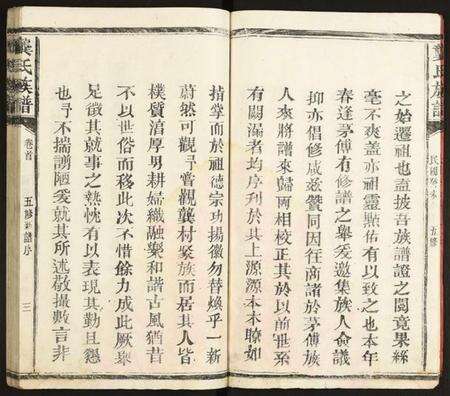 龔氏族譜
五修
之始遷祖也盍披吾族譜證之閱竟果絲
毫不爽蓋亦祖靈默佑有以致之也本年
春逢茅傅有修譜之舉爰邀集族人僉議
抑亦倡修咸茲贊同因往商諸於茅傅族
人來將譜來歸兩相校正其於以前世系
有闕漏者均序列於其上源源本本瞭如
指掌而於祖德宗功揚徽勿替煥乎一新
蔚然可觀予嘗觀龔村聚族而居其人皆
樸質渞厚男耕婦織融樂和諧古風猶昔
不以世俗而移此次不惜餘力成此厥舉
足徵其就事之熱忱有以表現其勤且懇
也予不揣謭陋爰就其所述敬撮數言非
龔氏族譜
卷首
五修新譜序
三